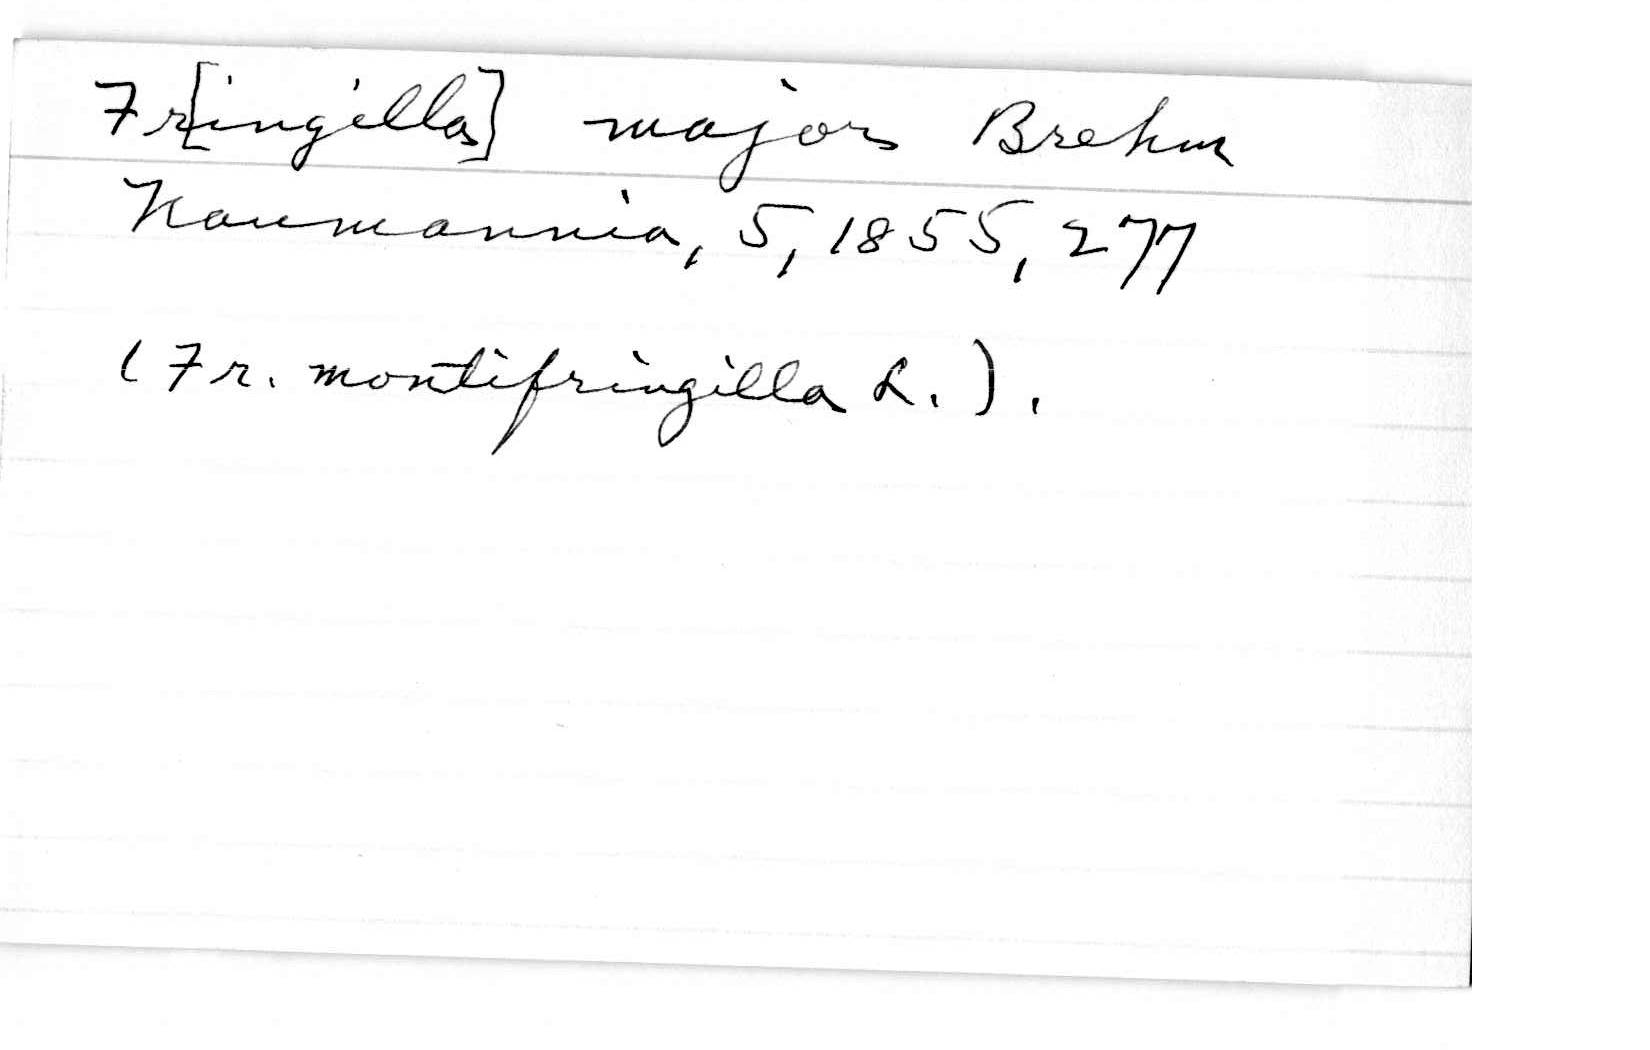 Fr[ingilla] major Brehm
Naumannia, 5, 1855, 277
(Fr. montifringilla L.).